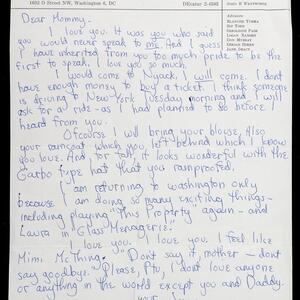 1632 O Street NW, Washington 6, D.C.
DEcatur 2-4583
John H. Whitworth
Advisors
Blanche Yurka
Guy Tobin
Geraldine Page
Don Murray
Jane Grace
Dear Mommy-
I love you. It was you who said
you would never speak to me. And I guess
I have inherited from you too much pride to be the
first to speak. I love you so much.
I would come to Nyack, I will come. I don't
have enough money to buy a ticket. I think someone
is driving to New York Tuesday morning and I will
ask for a ride - as I had planned to so before I
heard from you.
Ofcourse I will bring your blouse. Also
your raincoat which you left behind which I know
you love. And, for rain, it looks wonderful with the
Garbo type hat that you rainproofed.
I am returning to Washington only
because I am doing so many exciting things-
including playing "This Property" again - and
Laura in "Glass Menagerie."
I love you. I love you. I feel like
Mimi McThing. "Don't say it, mother - don't
say goodbye." Please, I don't love anyone
or anything in the world except you and Daddy-
your